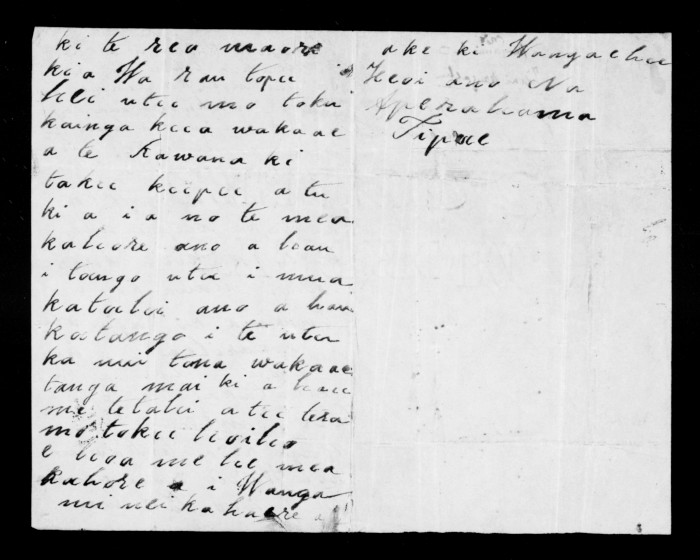 ki te rea maore
kia Wa rau topu i
hei utu mo toku
kainga kua wakaae
a te Kawana ki
taku kupu atu
ki a i a no te mea
kahore ano a hau
i tango utu i mua
katahi ano a hau
ka tango i te utu
ka nui tona wakaae
tanga mai ki a hau
me tetahi atu
mo toku hoiho
e hoa me he mea
kahore a i Wanga
nui nei ka haere a
ake ki Wangaehu
Heoi ano Na
Aperahama
Tipae